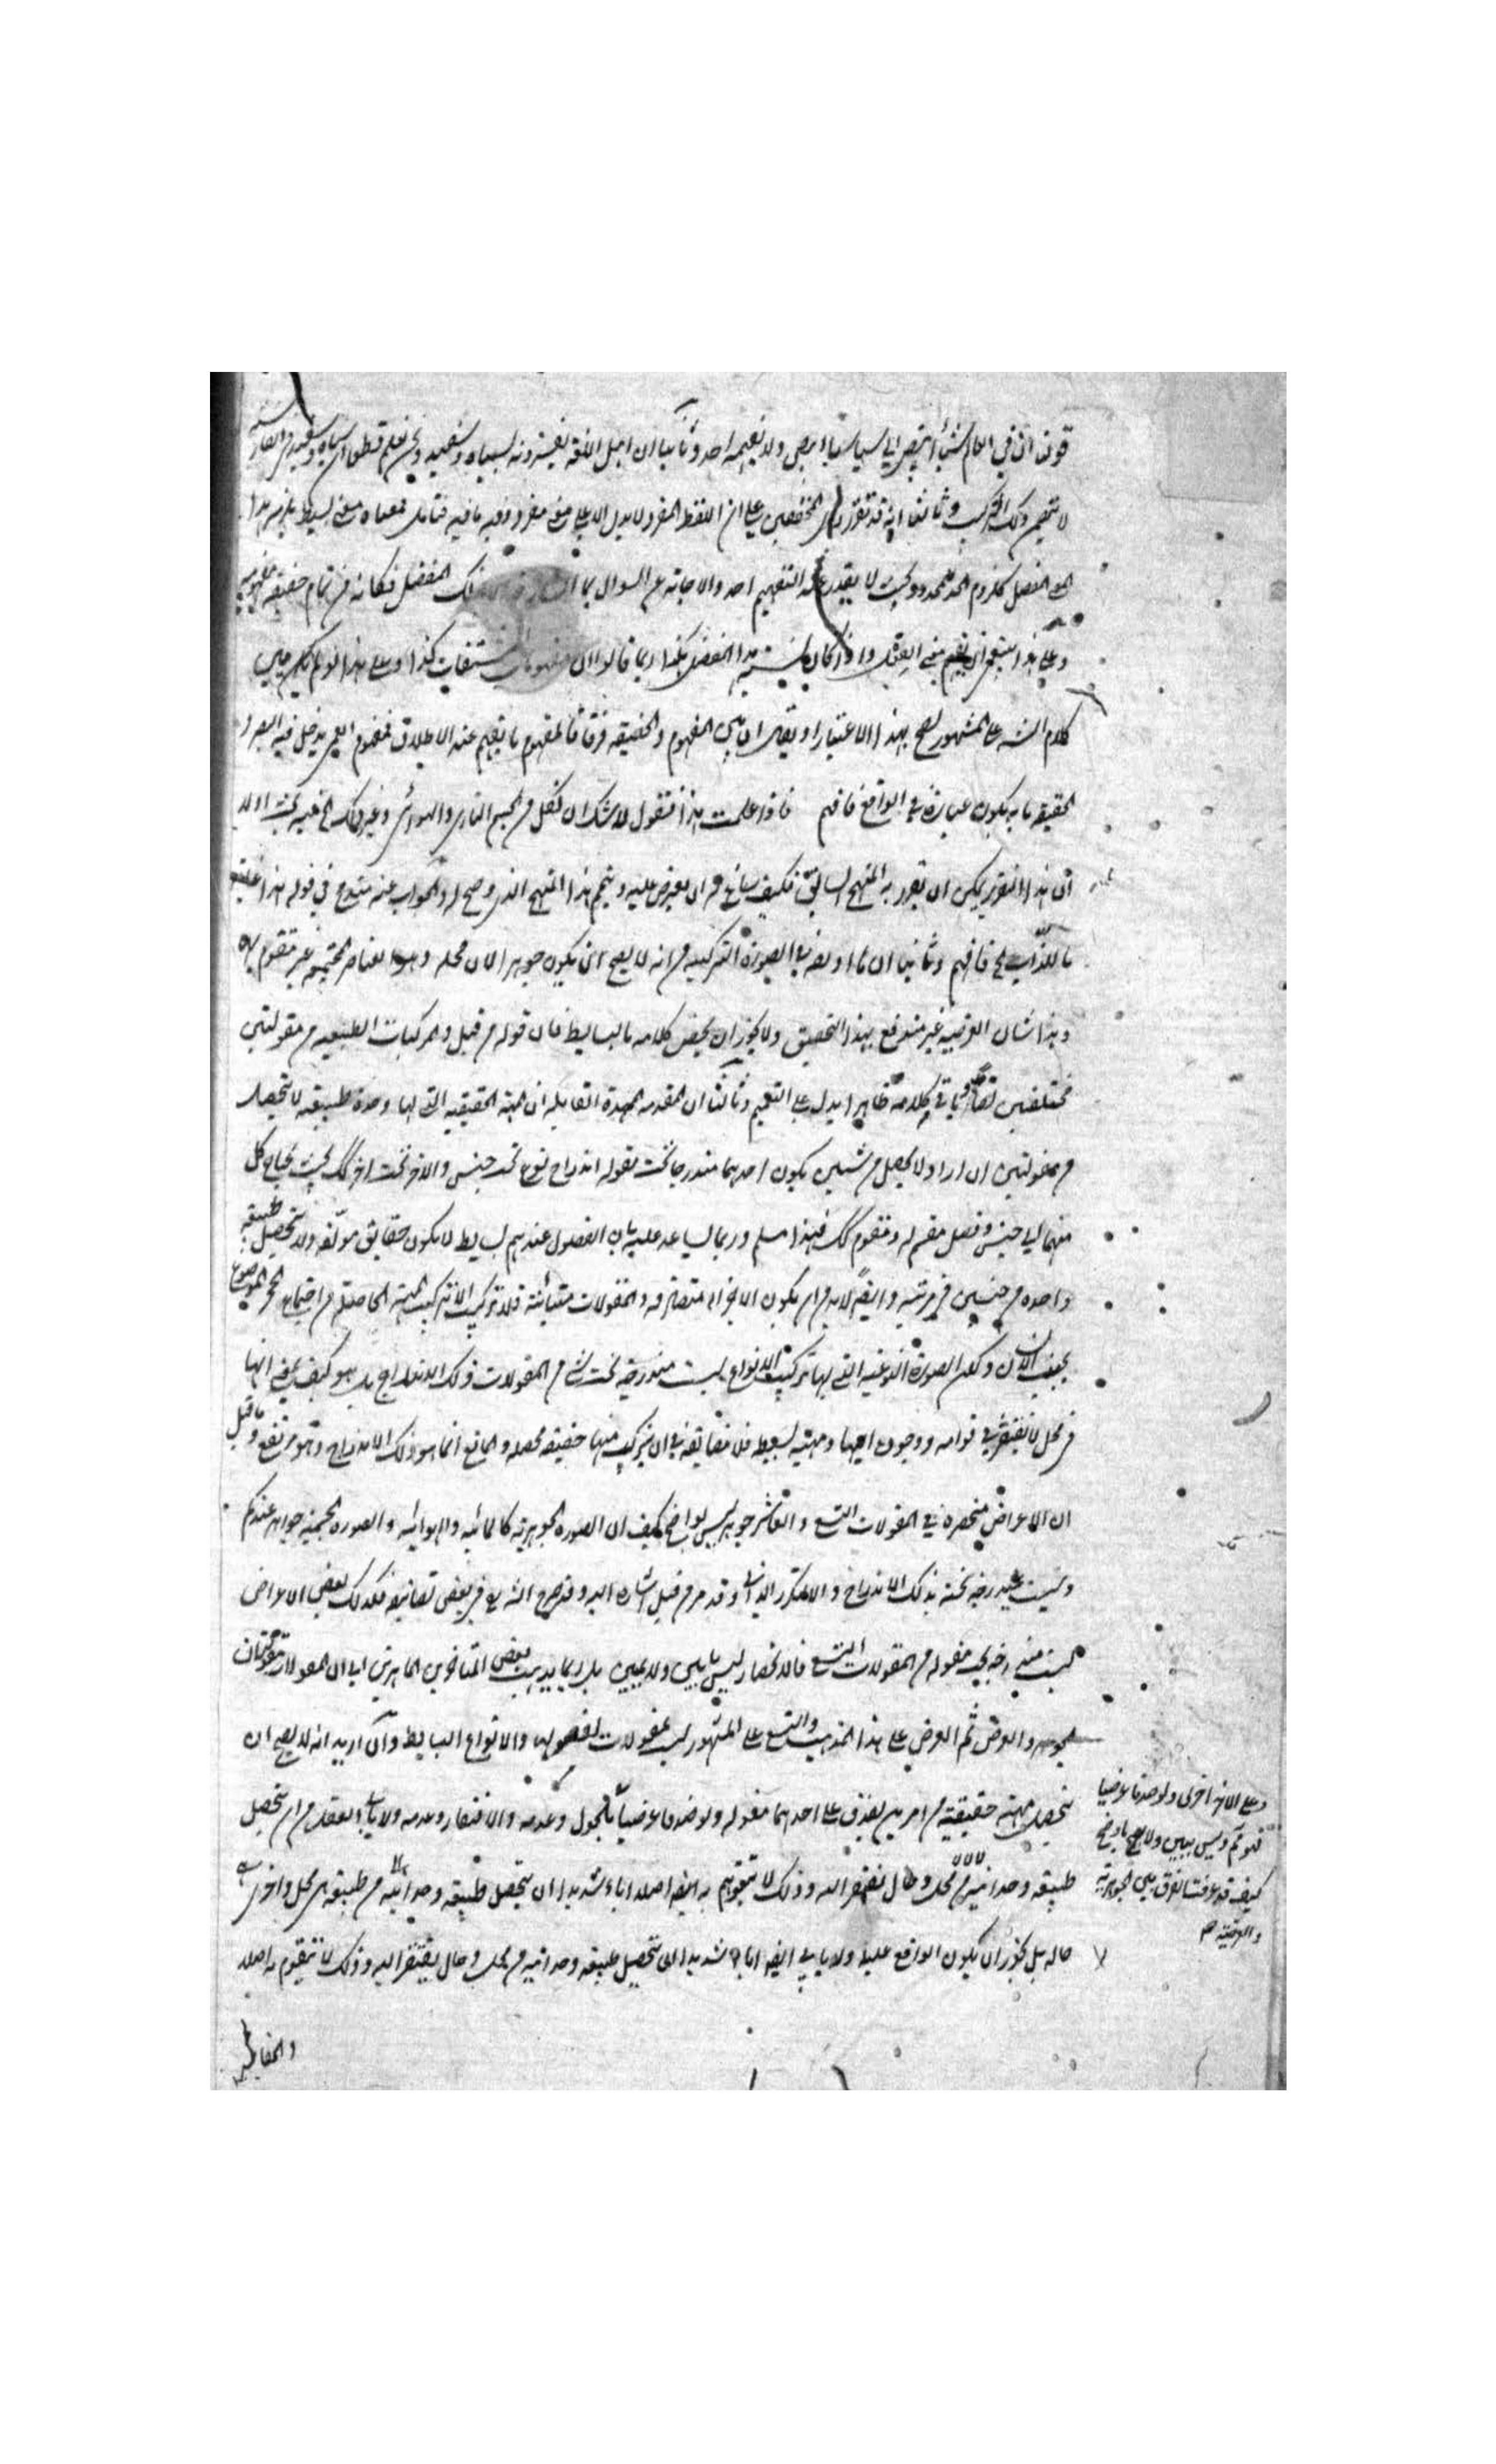 قولنا ان في العالم شيئا ابيض ولا يفهمه احد وثانيا ان اهل اللغة يفسرونه بسياه وسفيد ونحن نعلم قطعا ان سياه وسفيد في الفارسية
لا يتضمن ذلك التركيب وثالثا انه قد تقرر راى المحققين على ان اللفظ المفرد لا يدل الا على معنى مفرد وفيه ما فيه فتامل فمعناه معنى بسيط يلزمه هذا
المعنى المفصل كلزوم الحد للمحدود بحيث لا يقدر عند التفهيم احد والاجابة عن السوال بما ذلك المفصل فكانه من تمام حقيقة مفهومه
وعلى هذا ينبغى ان يفهم معنى واذا كان هذا المفصل هكذا ربما قالوا ان مفهومات المشتقات كذا وعلى هذا لو لم يكن مبنى
كلام الشـ على المشهور لصح بهذا الاعتبار او يقال ان بين المفهوم والحقيقة فرقا فالمفهوم ما يفهم عند الاطلاق فمفهوم العمى يدخل فيه البصر و
الحقيقة ما به يكون عبارة في الواقع فافهم فاذا علمت هذا فنقول لا شك ان كل من الجسم النارى والهوائى وغير ذلك الخ فيه بحث اولا
ان هذا التقرير يمكن ان يقرر به المنهج السابق فكيف ساغ له ان يعترض عليه ويتمم هذا المنهج الذى وضح له والجواب عنه في قوله هذا
بالذات الخ فافهم وثانيا ان ما اورد في الصورة التركيبية من انه لا يصح ان يكون جوهرا لان محله وهو العناصر المجتمعة غير متقوم به
وهذا شان العرضية غير مندفع بهذا التحقيق ولا يجوز ان يخص كلامه بالبسايط فان قوله من قبل والمركبات الطبيعية من مقولتين
مختلفتين وباقى كلامه ظاهرا يدل على التعميم وثالثا ان المقدمة الممهدة القائلة ان المهية الحقيقية التى لها وحدة طبيعية لا تتحصل
من مقولتين ان اراد لا يحصل من شيئين يكون احدهما مندرجا تحت مقولة اندراج نوع تحت جنس والاخر تحت اخر كك بحيث يحتاج كل
منهما الى جنس وفصل مقسم له ومقوم كك فهذا مسلم وربما يساعد عليه بان الفصول عندهم بسايط لا يكون حقايق مولفة ولا يتحصل طبيعة
واحدة من جنسين في مرتبة وايضا لا بد من ان يكون الاجزاء متصادقة والمقولات متباينة فلا تركيب الا تركيب المهية الحاصلة من اجتماع الحجر الموضوع
بجنب الانسان ولكن الصورة النوعية التى بها تركيب الانواع ليست مندرجة تحت شئ من المقولات ذلك الاندراج بل هو كيف يعنى انها
في محل لا يفتقر في قوامه ووجوده اليها ومهية بسيطة فلا مضايقة في ان يتركب منهما حقيقة محصلة والمانع انما هو ذلك الاندراج وهو مرتفع وما قيل
ان الاعراض منحصرة في المقولات التسع والعاشر جوهر ليس بواضح كيف ان الصورة الجوهرية كالمائية والهوائية والصورة الجسمية جواهر عندكم
وليست مندرجة تحته بذلك الاندراج والا لتكرر الذاتى وقد مر من قبل اشارة اليه وقد صرح الشيخ في بعض تصانيفه فكذلك بعض الاعراض
ليست مندرجة تحت مقولة من المقولات التسع فالانحصار ليس ببين ولا بمبين بل ربما يذهب بعض المتاخرين الماهرين الى ان المقولات مقولتان
الجوهر والعرض ثم العرض على هذا المذهب والتسع على المشهور ليست بمقولات لفصولها والانواع البسايط وان اريد انه لا يصح ان
يتحصل مهية حقيقية من امرين يصدق على احدهما مقولة ولو صدقا عرضيا كالحلول وعدمه والافتقار وعدمه ولا يابى العقل من ان يتحصل
طبيعة وحدانية من محل وحال يفتقر اليه وذلك لا يتقوم به ايضا اصلا اباء شديدا ان يتحصل طبيعة وحدانية من طبيعة هى محل واخرى
حاله بل يجوز ان يكون الواقع عليه ولا يابى ايضا اباء شديدا ان يتحصل طبيعة وحدانية من محل وحال يفتقر اليه وذلك لا يتقوم به اصلا
وعلى الاخر اخرى ولو صدقا عرضيا
فهو مم وليس ببين ولا واضح
كيف وقد عرفت الفرق بين الجوهرية
والعرضية صح